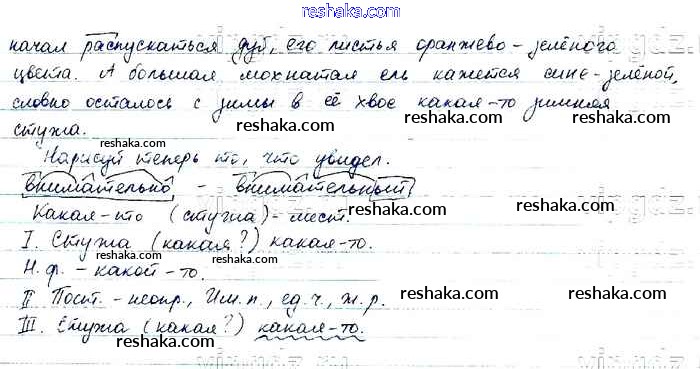 reshaka.com
начал распускаться дуб, его листья оранжево-зелёного
цвета. А большая мохнатая ель кажется сине-зелёной,
reshaka.com
словно осталось с зимы в её хвое какая-то зимняя
reshaka.com reshaka.com
стужа.
reshaka.com
Нарисуй теперь то, что увидел.
reshaka.com
внимательно - внимательный
reshaka.com
Какая-то (стужа) - мест.
reshaka.com
I. Стужа (какая?) какая-то.
reshaka.com
Н.ф. - какой-то.
reshaka.com
II Пост. - неопр., Им.п., ед.ч., ж.р.
reshaka.com
III. Стужа (какая?) какая-то.
reshaka.com